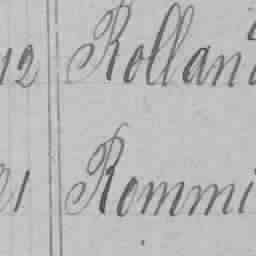 12 Rolland
21 Rommi